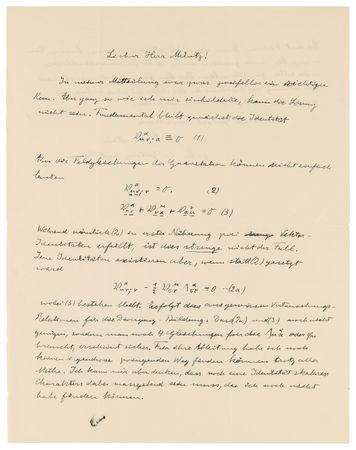 Lieber Herr Müntz!
In meiner Mitteilung war zwar zweifellos ein richtiger
Kern. Aber ganz so wie ich mir einbildete, kann die Lösung
nicht sein. Fundamental bleibt zunächst die Identität
(1)
Aber die Feldgleichungen der Gravitation können nicht einfach
lauten
= 0. (2)
= 0 (3)
Während nämlich (2) in erster Näherung zwei Vektor-
Identitäten erfüllt, ist dies strenge nicht der Fall.
Jene Identitäten existieren aber, wenn statt (2) gesetzt
wird
= 0 -- (2a)
wobei (3) bestehen bleibt. Es folgt dies aus gewissen Vertauschungs-
Relationen für die Divergenz-Bildung. Dass (2a) und (3) noch nicht
genügen, sondern man noch 4 Gleichungen für das
braucht, erscheint sicher. Für ihre Ableitung habe ich noch
keinen irgendwie zwingenden Weg finden können trotz aller
Mühe. Ich kann mir aber denken, dass noch eine Identität skalaren
Charakters dabei massgebend sein muss, die ich noch nicht
habe finden können.